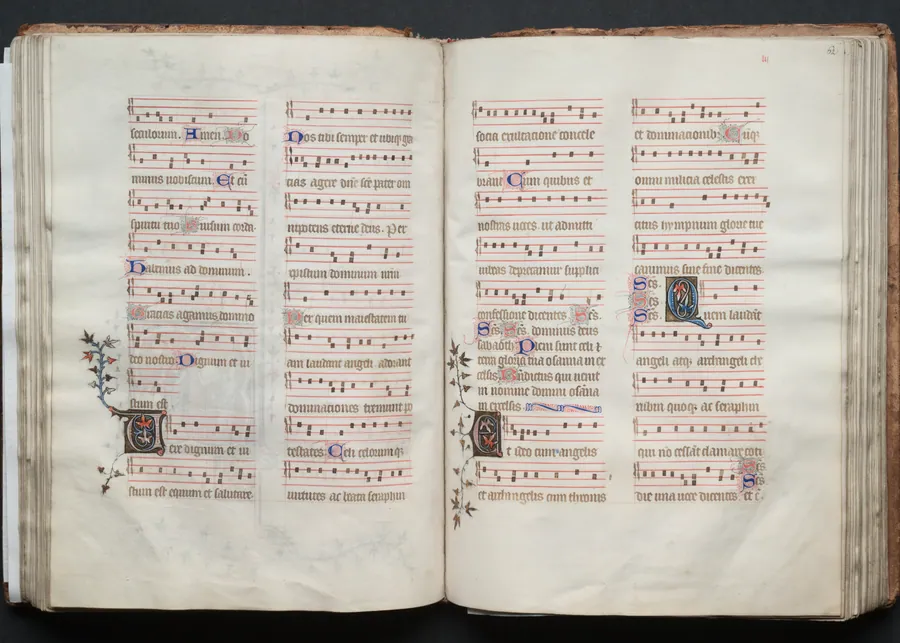 seculorum. Amen. Do
minus uobiscum. Et cū
spiritu tuo Sursum corda.
habemus ad dominum.
Gracias agamus domino
deo nostro. Dignum et iu
stum est
Uere dignum et iu
stum est equum et salutare.
Nos tibi semper et ubiqȝ gra
cias agere dn̄e sc̄e pater om
nipotens eterne deus. Per
xpistum dominum nrm̄
Per quem maiestatem tu
am laudant angeli. adorant
dominaciones tremunt po
testates. Celi celorumqȝ
uirtutes ac beata seraphin
socia exultacione concele
brant Cum quibus et
nostras uoces. ut admitti
iubeas deprecamur supplici
confessione dicentes. Sc̄s.
Sc̄s. Sc̄s. dominus deus
sabaoth Pleni sunt celi ⁊
terra gloria tua osanna in ex
celsis Benedictus qui uenit
in nomine domini osāna
in excelsis
Et ideo cum angelis
et archangelis cum thronis
lxi
62
et dominacionibȝ. Cūqȝ
omni milicia celestis exer
citus hympnum glorie tue
canimus sine fine dicentes.
Sc̄s.
Sc̄s
Sc̄s.
Quem laudāt
angeli atqȝ archangeli che
rubin quoqȝ ac seraphin
qui no cessāt clamare coti
Sc̄s
die una uoce dicentes
Sc̄s